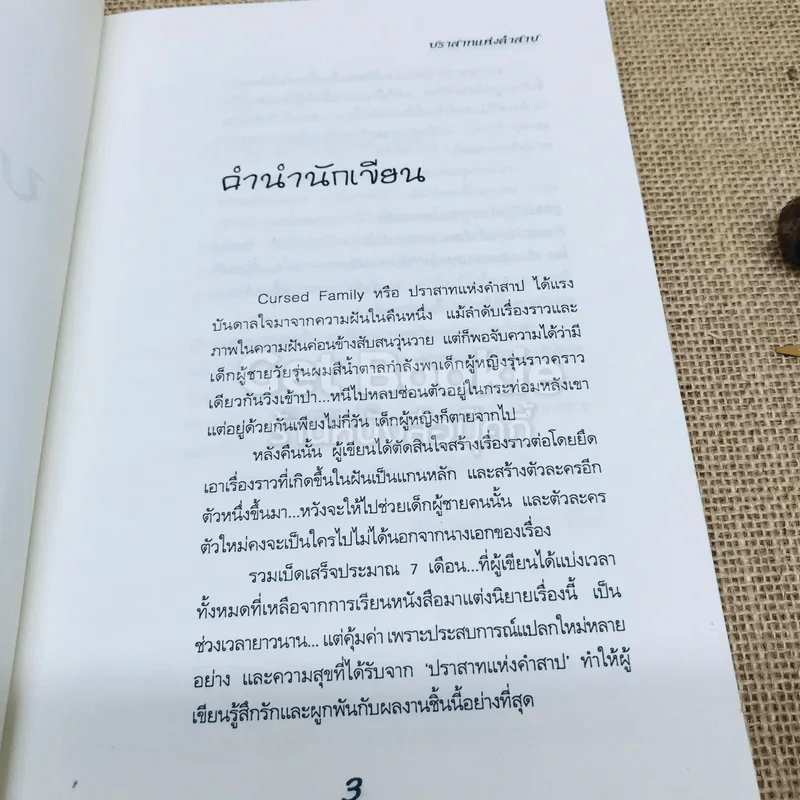 ปราสาทแห่งคำสาป
คำนำนักเขียน
Cursed Family หรือ ปราสาทแห่งคำสาป ได้แรง
บันดาลใจมาจากความฝันในคืนหนึ่ง แม้ลำดับเรื่องราวและ
ภาพในความฝันค่อนข้างสับสนวุ่นวาย แต่ก็พอจับความได้ว่ามี
เด็กผู้ชายวัยรุ่นผมสีน้ำตาลกำลังพาเด็กผู้หญิงรุ่นราวคราว
เดียวกันวิ่งเข้าป่า...หนีไปหลบซ่อนตัวอยู่ในกระท่อมหลังเขา
แต่อยู่ด้วยกันเพียงไม่กี่วัน เด็กผู้หญิงก็ตายจากไป
หลังคืนนั้น ผู้เขียนได้ตัดสินใจสร้างเรื่องราวต่อโดยยึด
เอาเรื่องราวที่เกิดขึ้นในฝันเป็นแกนหลัก และสร้างตัวละครอีก
ตัวหนึ่งขึ้นมา...หวังจะให้ไปช่วยเด็กผู้ชายคนนั้น และตัวละคร
ตัวใหม่คงจะเป็นใครไปไม่ได้นอกจากนางเอกของเรื่อง
รวมเบ็ดเสร็จประมาณ 7 เดือน...ที่ผู้เขียนได้แบ่งเวลา
ทั้งหมดที่เหลือจากการเรียนหนังสือมาแต่งนิยายเรื่องนี้ เป็น
ช่วงเวลายาวนาน... แต่คุ้มค่า เพราะประสบการณ์แปลกใหม่หลาย
อย่าง และความสุขที่ได้รับจาก 'ปราสาทแห่งคำสาป' ทำให้ผู้
เขียนรู้สึกรักและผูกพันกับผลงานชิ้นนี้อย่างที่สุด
3